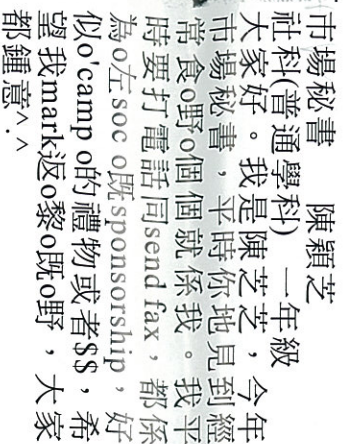 市場秘書　陳穎芝
社科(普通學科) 一年級
大家好。我是陳芝芝，今年
市場秘書，平時你地見到經
常食o野o個個就係我。我平
時要打電話同send fax，都係
為o左soc o既sponsorship，好
似o'camp o的禮物或者$$，希
望我mark返o黎o既o野，大家
都鍾意^.^